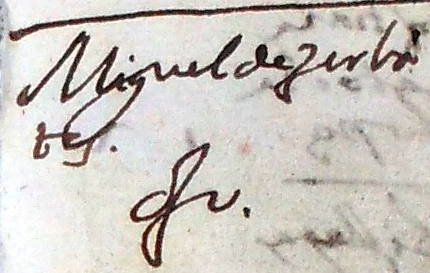 Miguel de zerba
tes.